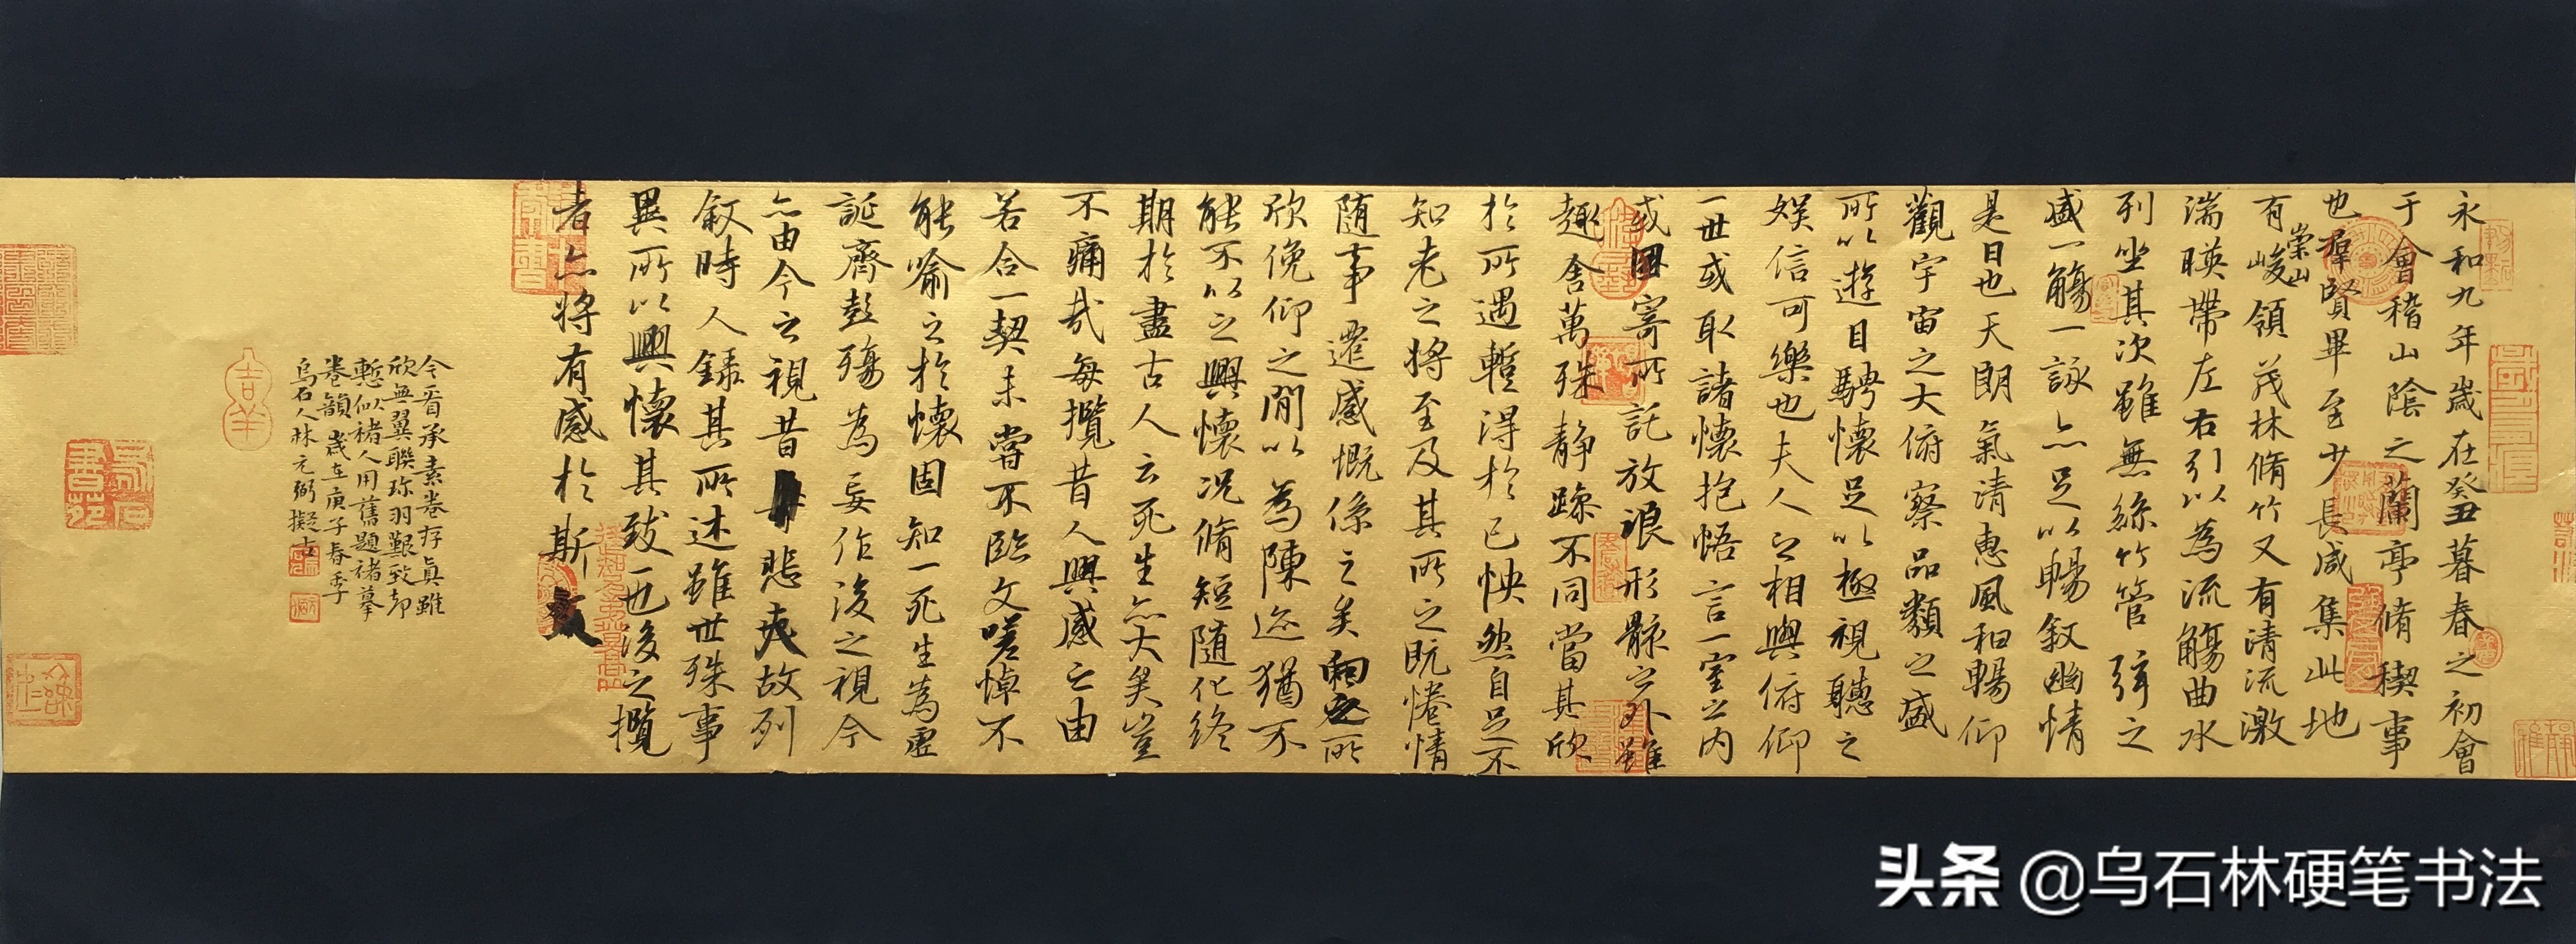 永和九年歲在癸丑暮春之初會
于會稽山陰之蘭亭脩稧事
也羣賢畢至少長咸集此地
有崇山峻領茂林脩竹又有清流激
湍暎帶左右引以為流觴曲水
列坐其次雖無絲竹管弦之
盛一觴一詠亦足以暢敘幽情
是日也天朗氣清惠風和暢仰
觀宇宙之大俯察品類之盛
所以遊目騁懷足以極視聽之
娛信可樂也夫人之相與俯仰
一世或取諸懷抱悟言一室之內
或因寄所託放浪形骸之外雖
趣舍萬殊靜躁不同當其欣
於所遇蹔得於己怏然自足不
知老之將至及其所之既惓情
隨事遷感慨係之矣向之所
欣俛仰之閒以為陳迹猶不
能不以之興懷況脩短隨化終
期於盡古人云死生亦大矣豈
不痛哉每攬昔人興感之由
若合一契未嘗不臨文嗟悼不
能喻之於懷固知一死生為虛
誕齊彭殤為妄作後之視今
亦由今之視昔悲夫故列
敘時人錄其所述雖世殊事
異所以興懷其致一也後之攬
者亦將有感於斯文
今看承素卷存真雖
欣無翼聯珎羽艱致却
慙似褚人用舊題褚摹
卷韻歲在庚子春季
烏石人林元弼擬古
吉羊
头条 @乌石林硬笔书法